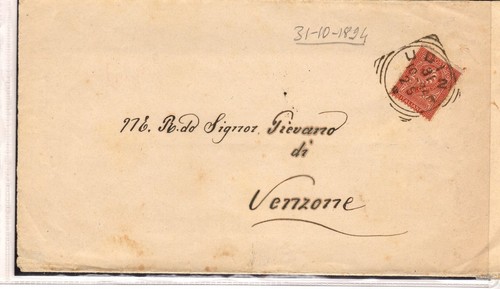 31-10-1894
UDINE
M. R.do Signor Pievano
di
Venzone